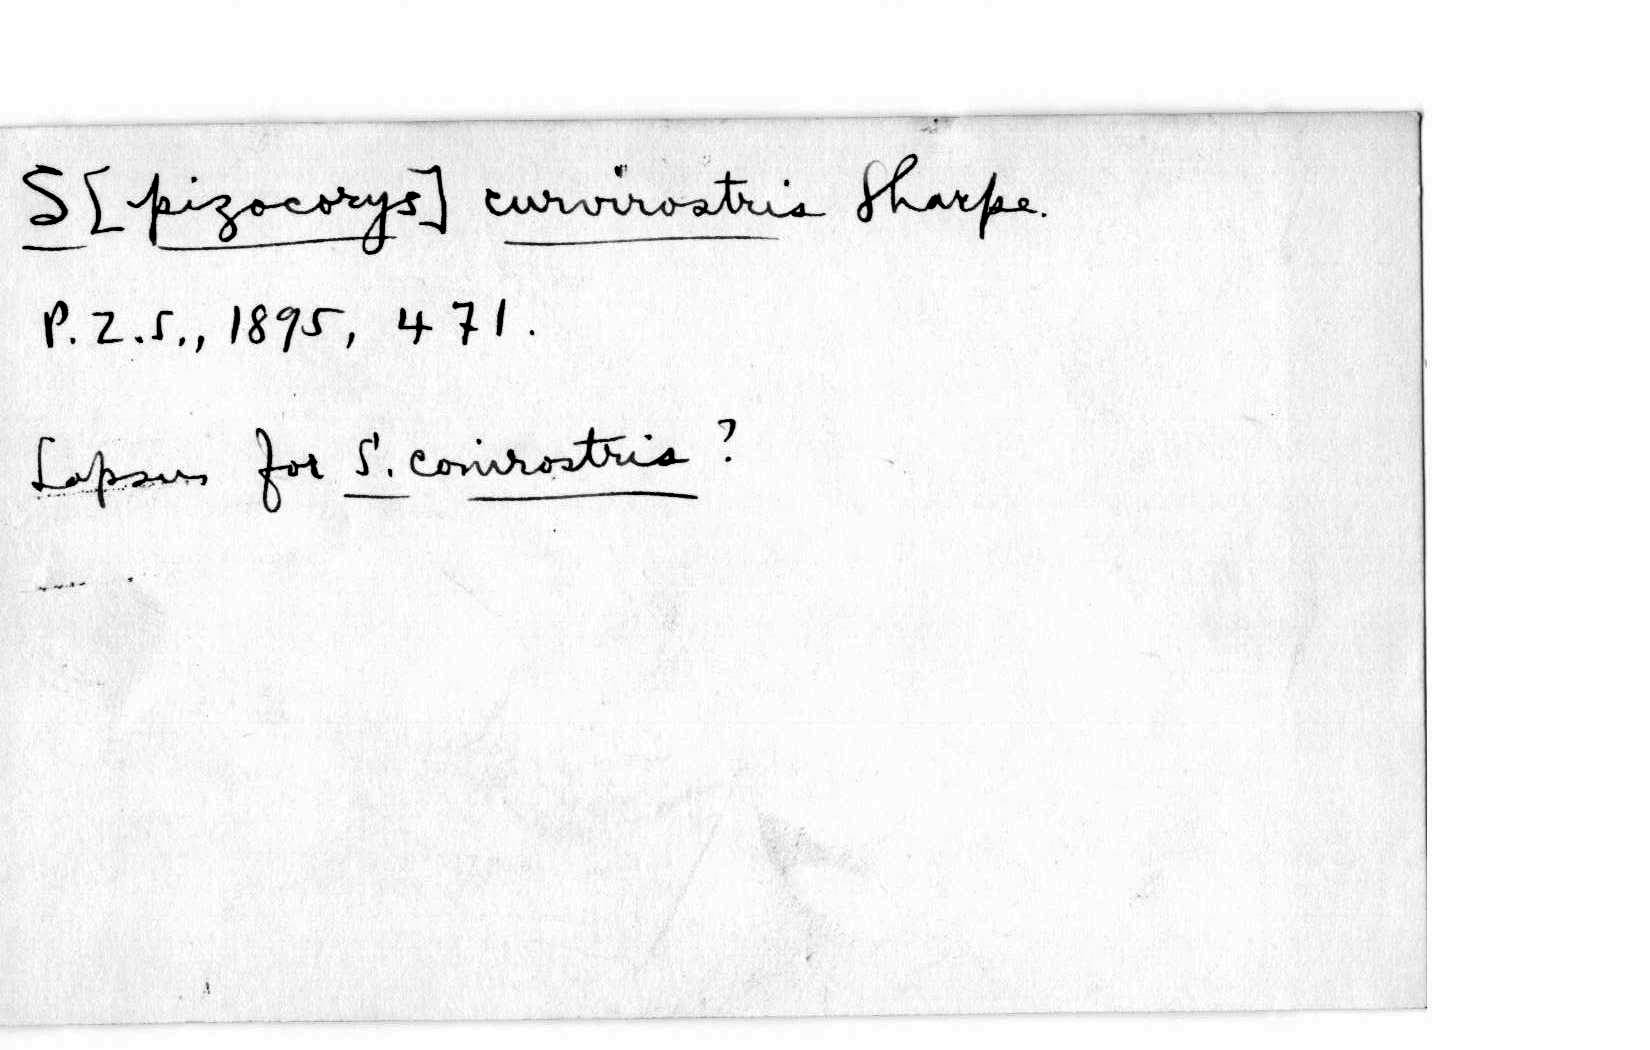 S[pizocorys] curvirostris Sharpe.
P.Z.S., 1895, 471.
Lapsus for S. conirostris?